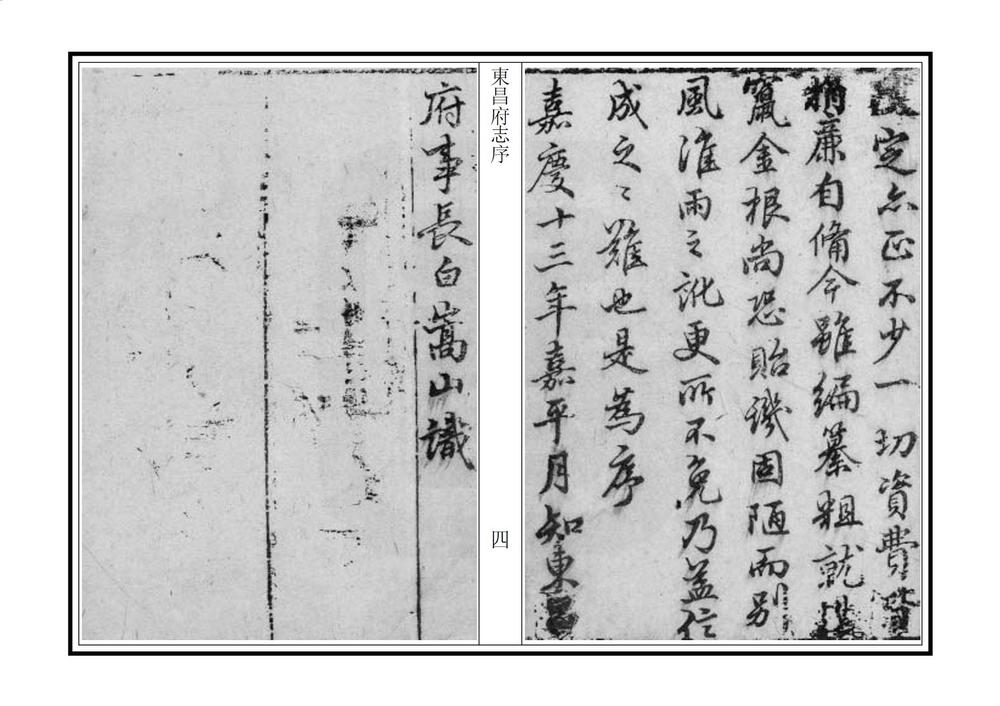 定亦正不少一切資費
捐廉自備今雖編纂粗就
竄金根尚恐貽譏固陋而別
風淮雨之訛更所不免乃益信
成之之難也是為序
嘉慶十三年嘉平月知東昌
府事長白嵩山識
東昌府志序
四